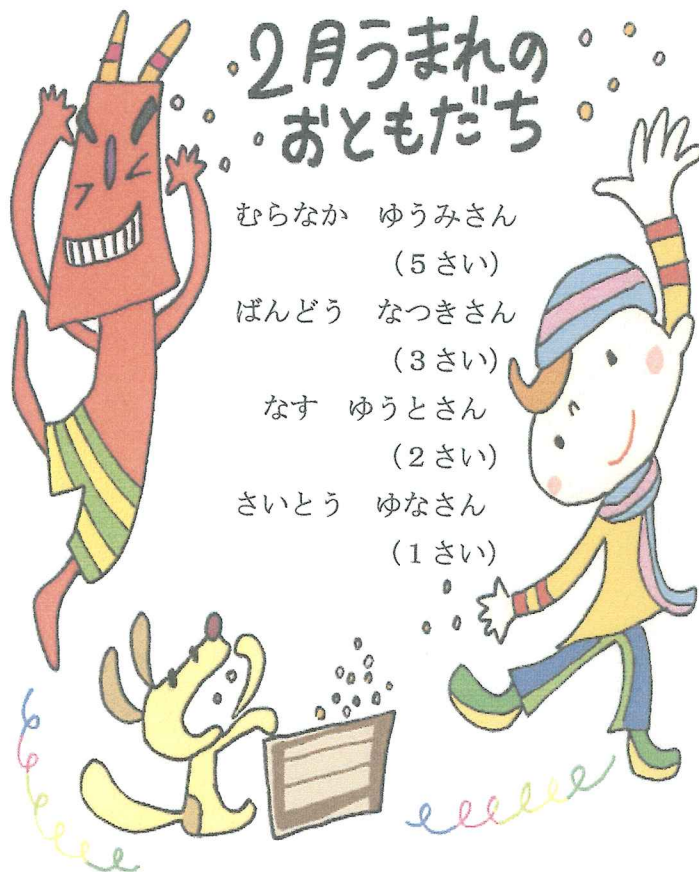 2月うまれの
おともだち
むらなか　ゆうみさん
（5さい）
ばんどう　なつきさん
（3さい）
なす　ゆうとさん
（2さい）
さいとう　ゆなさん
（1さい）